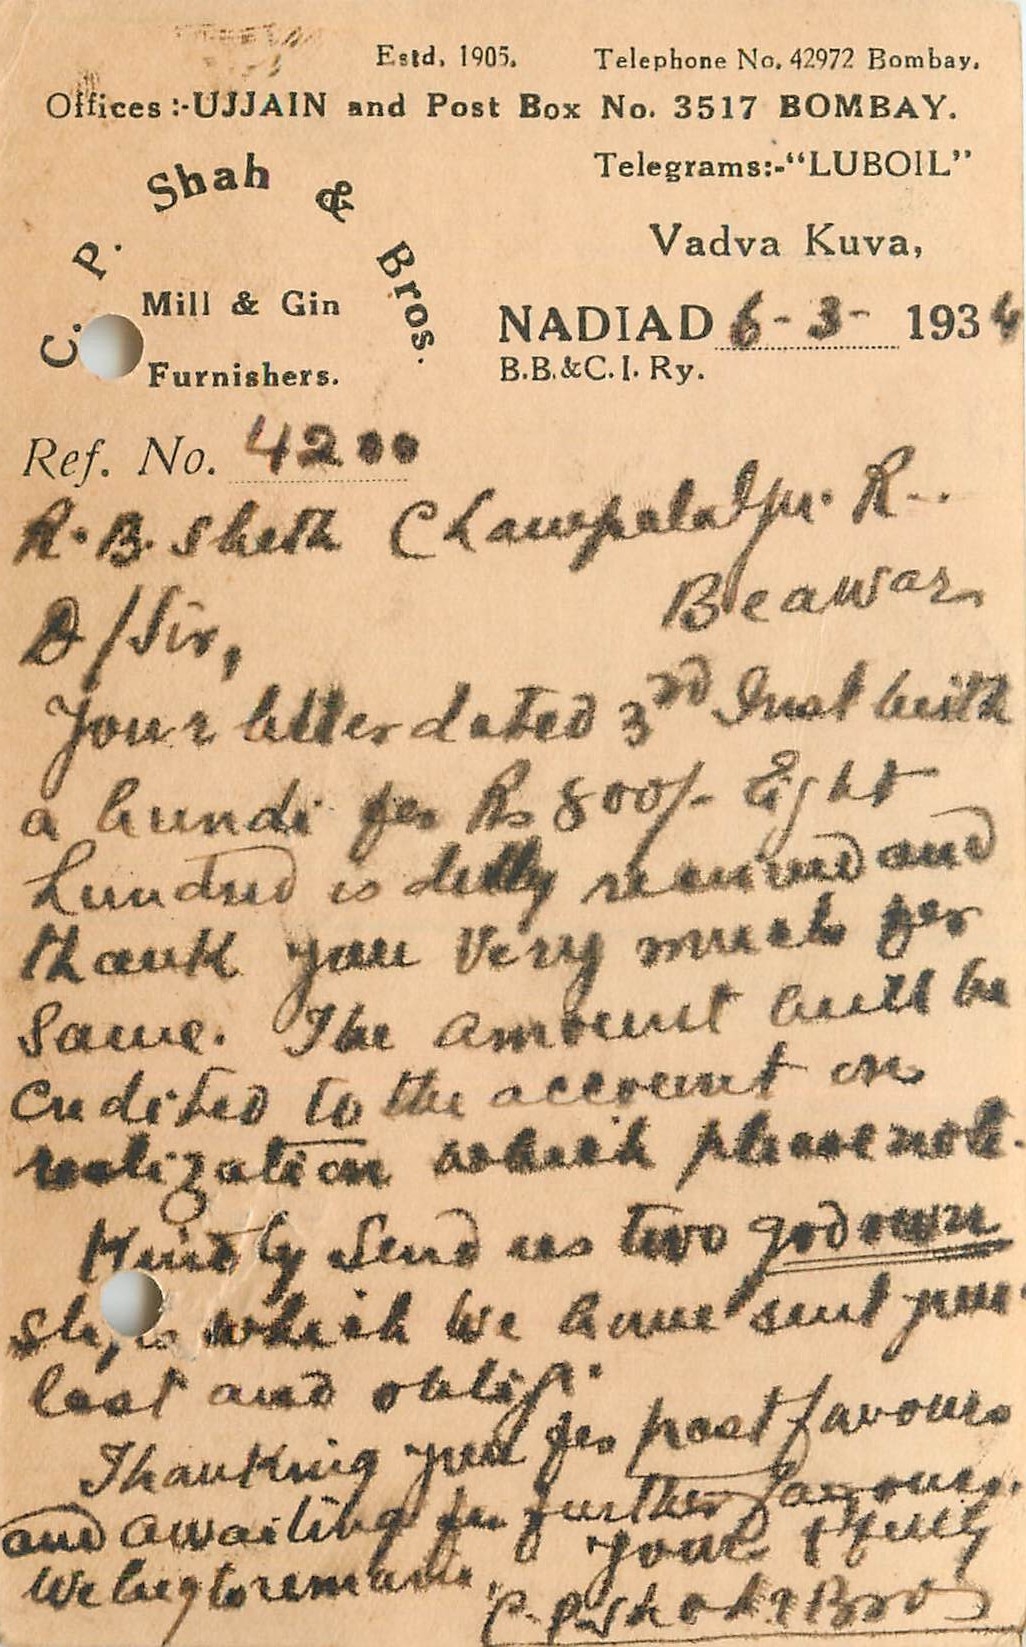 Estd. 1905. Telephone No. 42972 Bombay.
Offices :-UJJAIN and Post Box No. 3517 BOMBAY.
Telegrams:-“LUBOIL”
C. P. Shah & Bros.
Mill & Gin
Furnishers.
Vadva Kuva,
NADIAD 6-3- 1934
B.B.&C.I. Ry.
Ref. No. 4200
R.B. Sheth Champalalji R..
Beawar
D/Sir,
Your letter dated 3rd Inst with
a hundi for Rs 800/- Eight
hundred is dully received and
thank you very much for
same. The amount will be
credited to the account on
realization which please note.
Kindly send us two godown
slips which we have sent you
last and oblig.
Thanking you for past favours
and awaiting for further favours.
We beg to remain,
Yours f fully
C. P. Shah & Bros